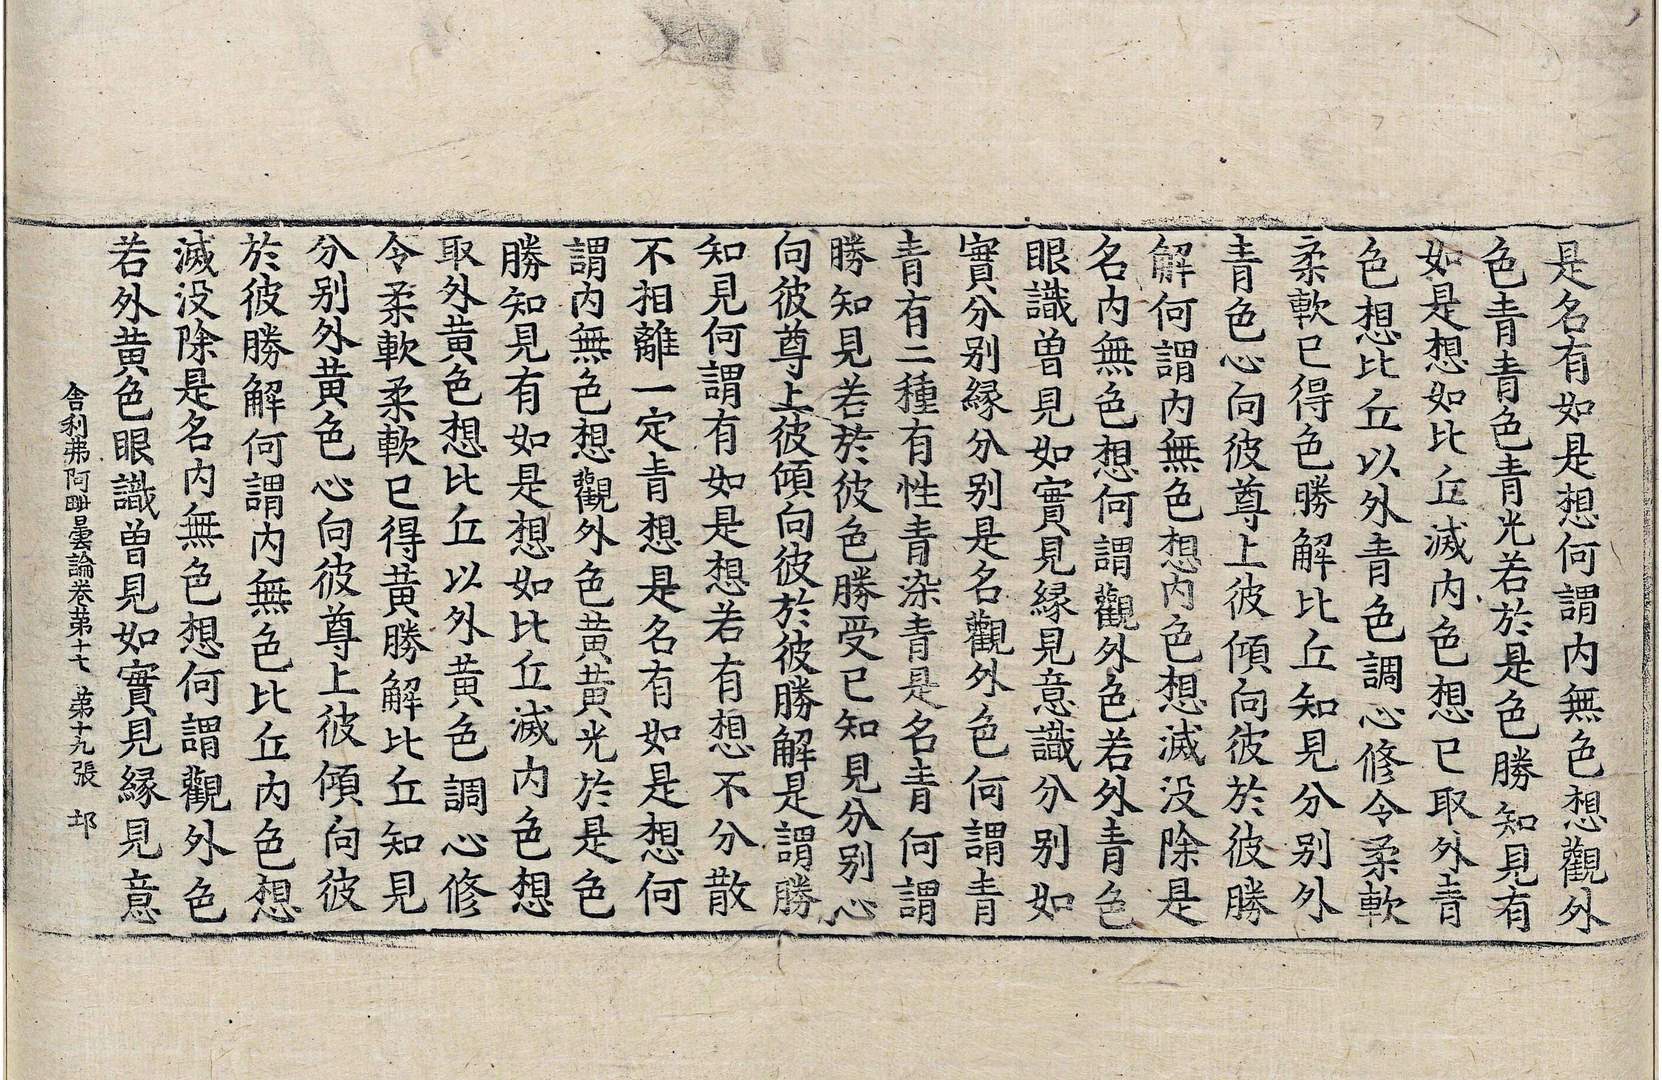 是名有如是想何謂内無色想觀外
色青青色青光若於是色勝知見有
如是想如比丘滅内色想已取外青
色想比丘以外青色調心修令柔軟
柔軟已得色勝解比丘知見分别外
青色心向彼尊上彼傾向彼於彼勝
解何謂内無色想内色想滅没除是
名内無色想何謂觀外色若外青色
眼識曽見如實見縁見意識分别如
實分别縁分别是名觀外色何謂青
青有二種有性青染青是名青何謂
勝知見若於彼色勝受已知見分别心
向彼尊上彼傾向彼於彼勝解是謂勝
知見何謂有如是想若有想不分散
不相離一定青想是名有如是想何
謂内無色想觀外色黄黄光於是色
勝知見有如是想如比丘滅内色想
取外黄色想比丘以外黄色調心修
令柔軟柔軟已得黄勝解比丘知見
分别外黄色心向彼尊上彼傾向彼
於彼勝解何謂内無色比丘内色想
滅没除是名内無色想何謂觀外色
若外黄色眼識曽見如實見縁見意
舎利弗阿毗曇論卷第十七 第十九張 邙